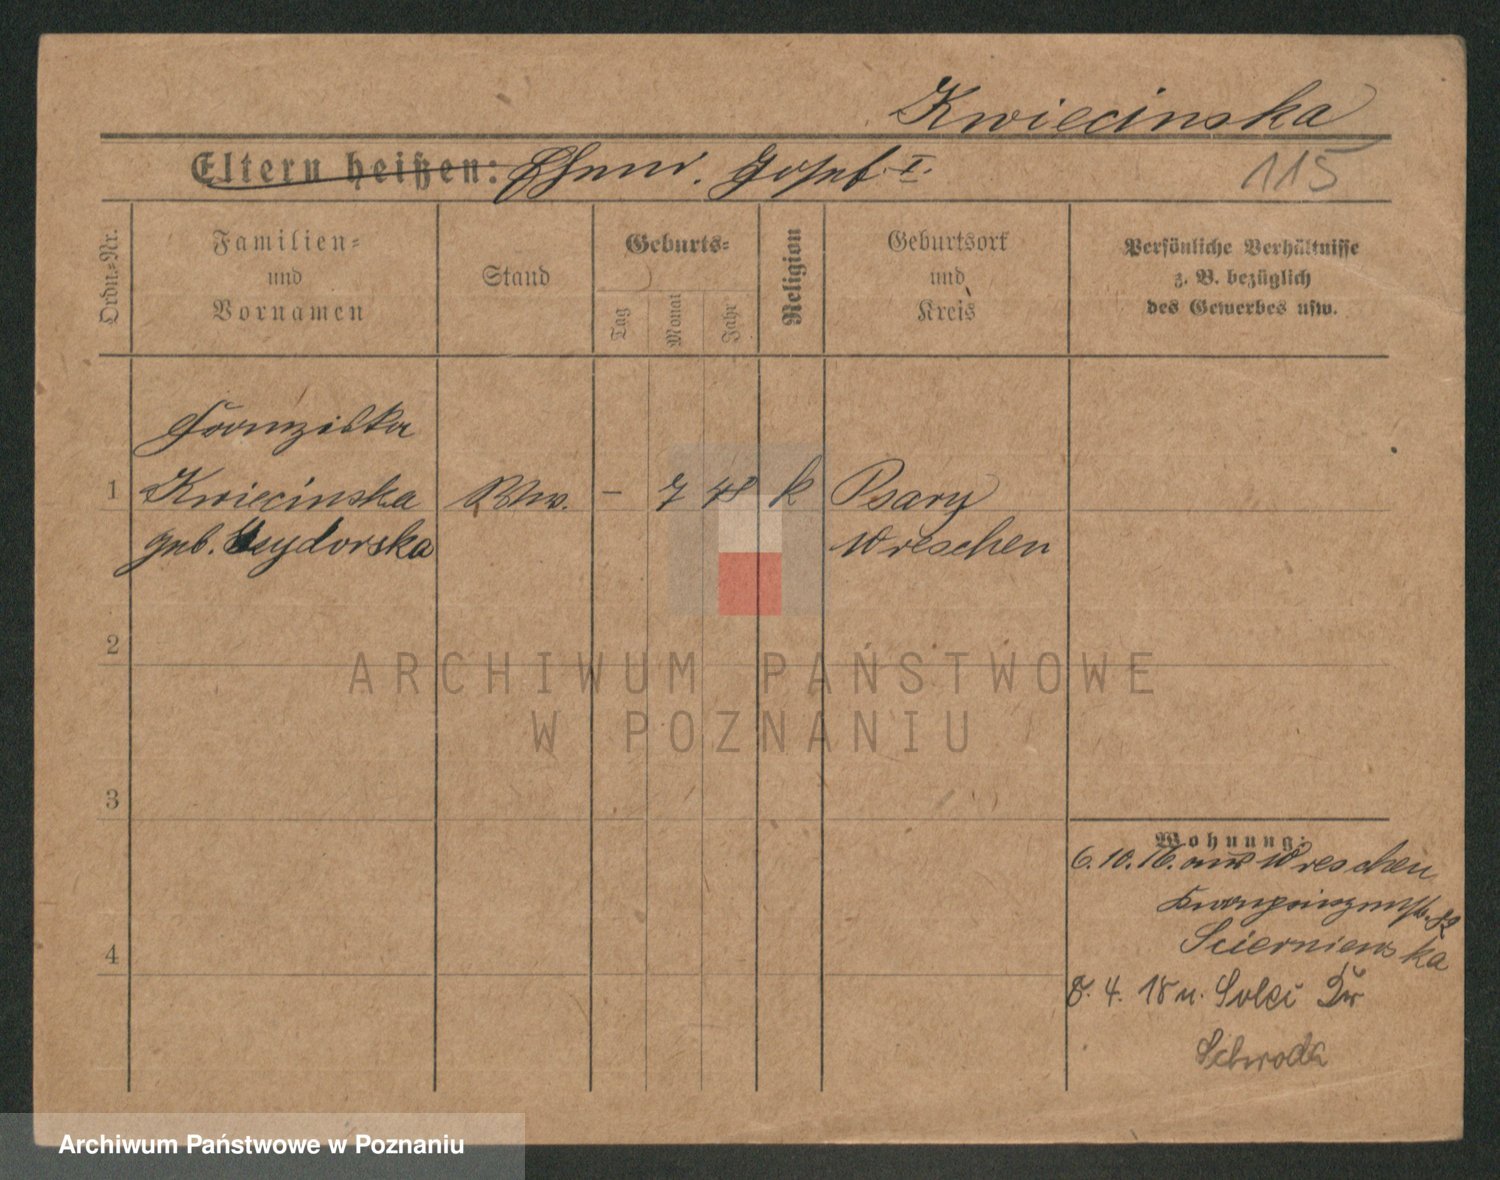 Kwiecinska
Eltern heißen: Ehem. Josef I.
115
Ordn.-Nr.
Familien-
und
Vornamen
Stand
Geburts-
Tag
Monat
Jahr
Religion
Geburtsort
und
Kreis
Persönliche Verhältnisse
z. B. bezüglich
des Gewerbes usw.
Franziska
1 Kwiecinska Ww. – 7 48 k Psary
geb. Wreschen
2
ARCHIWUM PAŃSTWOWE
W POZNANIU
3
Wohnung:
6. 10. 16. aus Wreschen
Kronprinzenstr. 82
Scierniewska
4
8. 4. 18 n. Solec Kr
Schroda
Archiwum Państwowe w Poznaniu